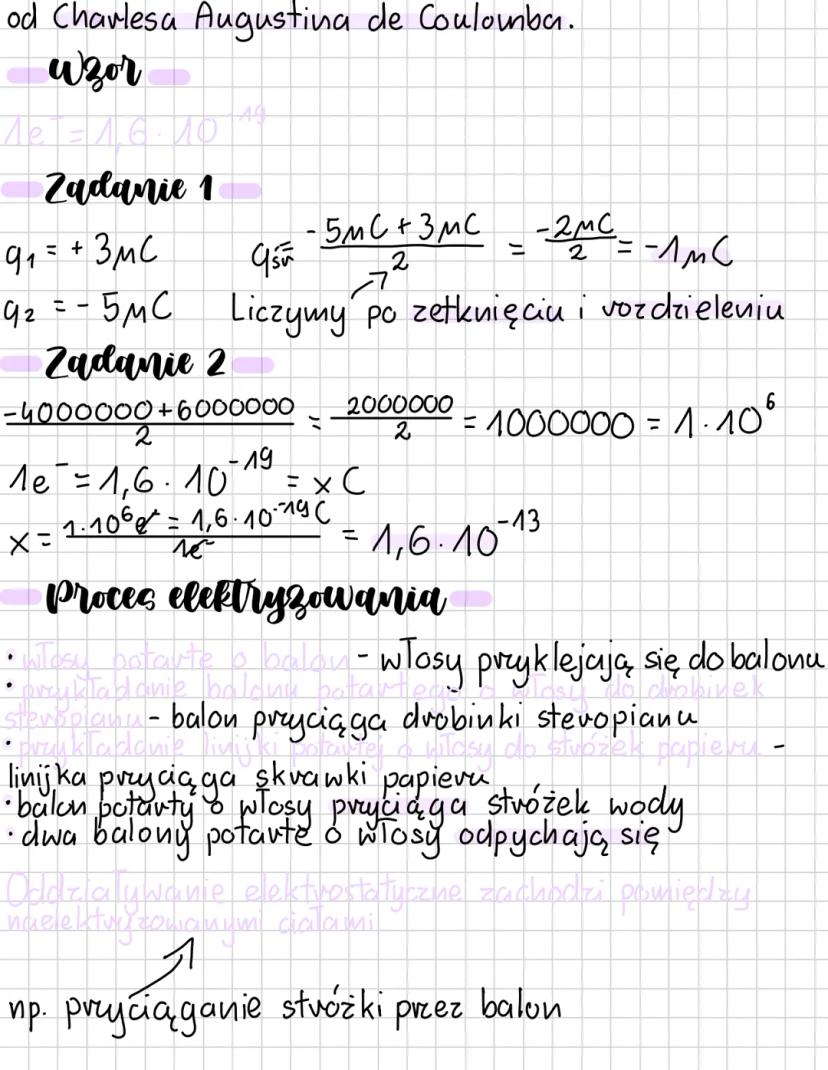 od Charlesa Augustina de Coulomba.
Wzor
1e⁻ = 1,6 · 10⁻¹⁹
Zadanie 1
q₁ = + 3μC    qśr = (-5μC + 3μC)/2 = -2μC/2 = -1μC
q₂ = - 5μC    Liczymy po zetknięciu i rozdzieleniu
Zadanie 2
(-4000000+6000000)/2 = 2000000/2 = 1000000 = 1·10⁶
1e⁻ = 1,6 · 10⁻¹⁹ = x C
x = (1·10⁶e⁻ = 1,6·10⁻¹⁹C)/1e⁻ = 1,6·10⁻¹³
Proces elektryzowania
• włosy potarte o balon - włosy przyklejają się do balonu
• przykładanie balonu potartego o włosy do drobinek
steropianu - balon przyciąga drobinki steropianu
• przykładanie linijki potartej o włosy do stróżek papieru -
linijka przyciąga skrawki papieru
• balon potarty o włosy przyciąga stróżek wody
• dwa balony potarte o włosy odpychają się
Oddziaływanie elektrostatyczne zachodzi pomiędzy
naelektryzowanymi ciałami
np. przyciąganie stróżki przez balon